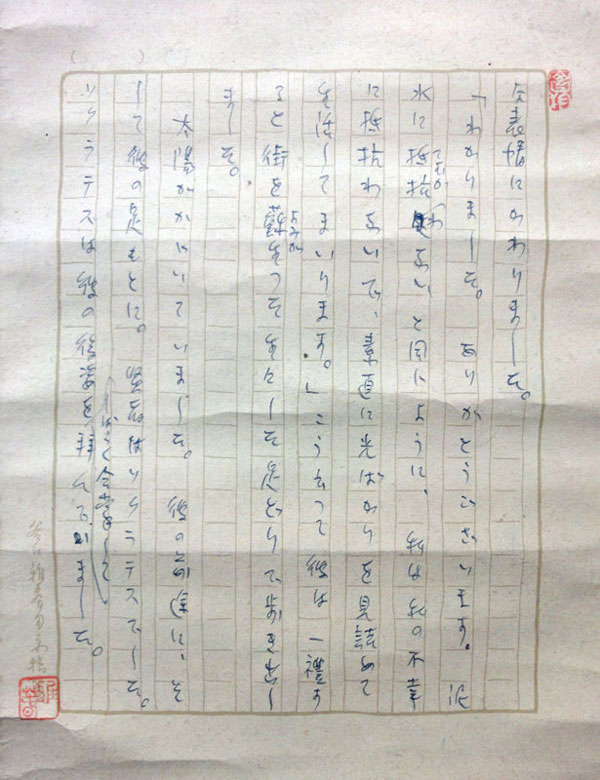 た表情にかわりました。
「わかりました。ありがとうございます。泥
水に抵抗わないと同じように、私は私の不幸
てむか
に抵抗わないで、素直に光ばかりを見詰めて
生活してまいります。」こう云つて彼は一禮す
ると街を蘇生つた生々した足どりで歩き出し
よみが
ました。
太陽がかがやいていました。彼の前途に、そ
して彼の足もとに。賢者はソクラテスでした。
合掌して
ソクラテスは彼の後姿を拝んでゐました。
谷口雅春